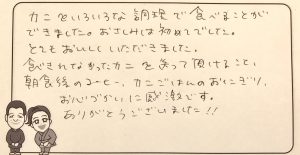 カニをいろいろな調理で食べることが
できました。おさしみは初めてでした。
とてもおいしくいただきました。
食べきれなかったカニを送って頂けること、
朝食後のコーヒー、カニごはんのおにぎり、
お心づかいに感激です。
ありがとうございました!!